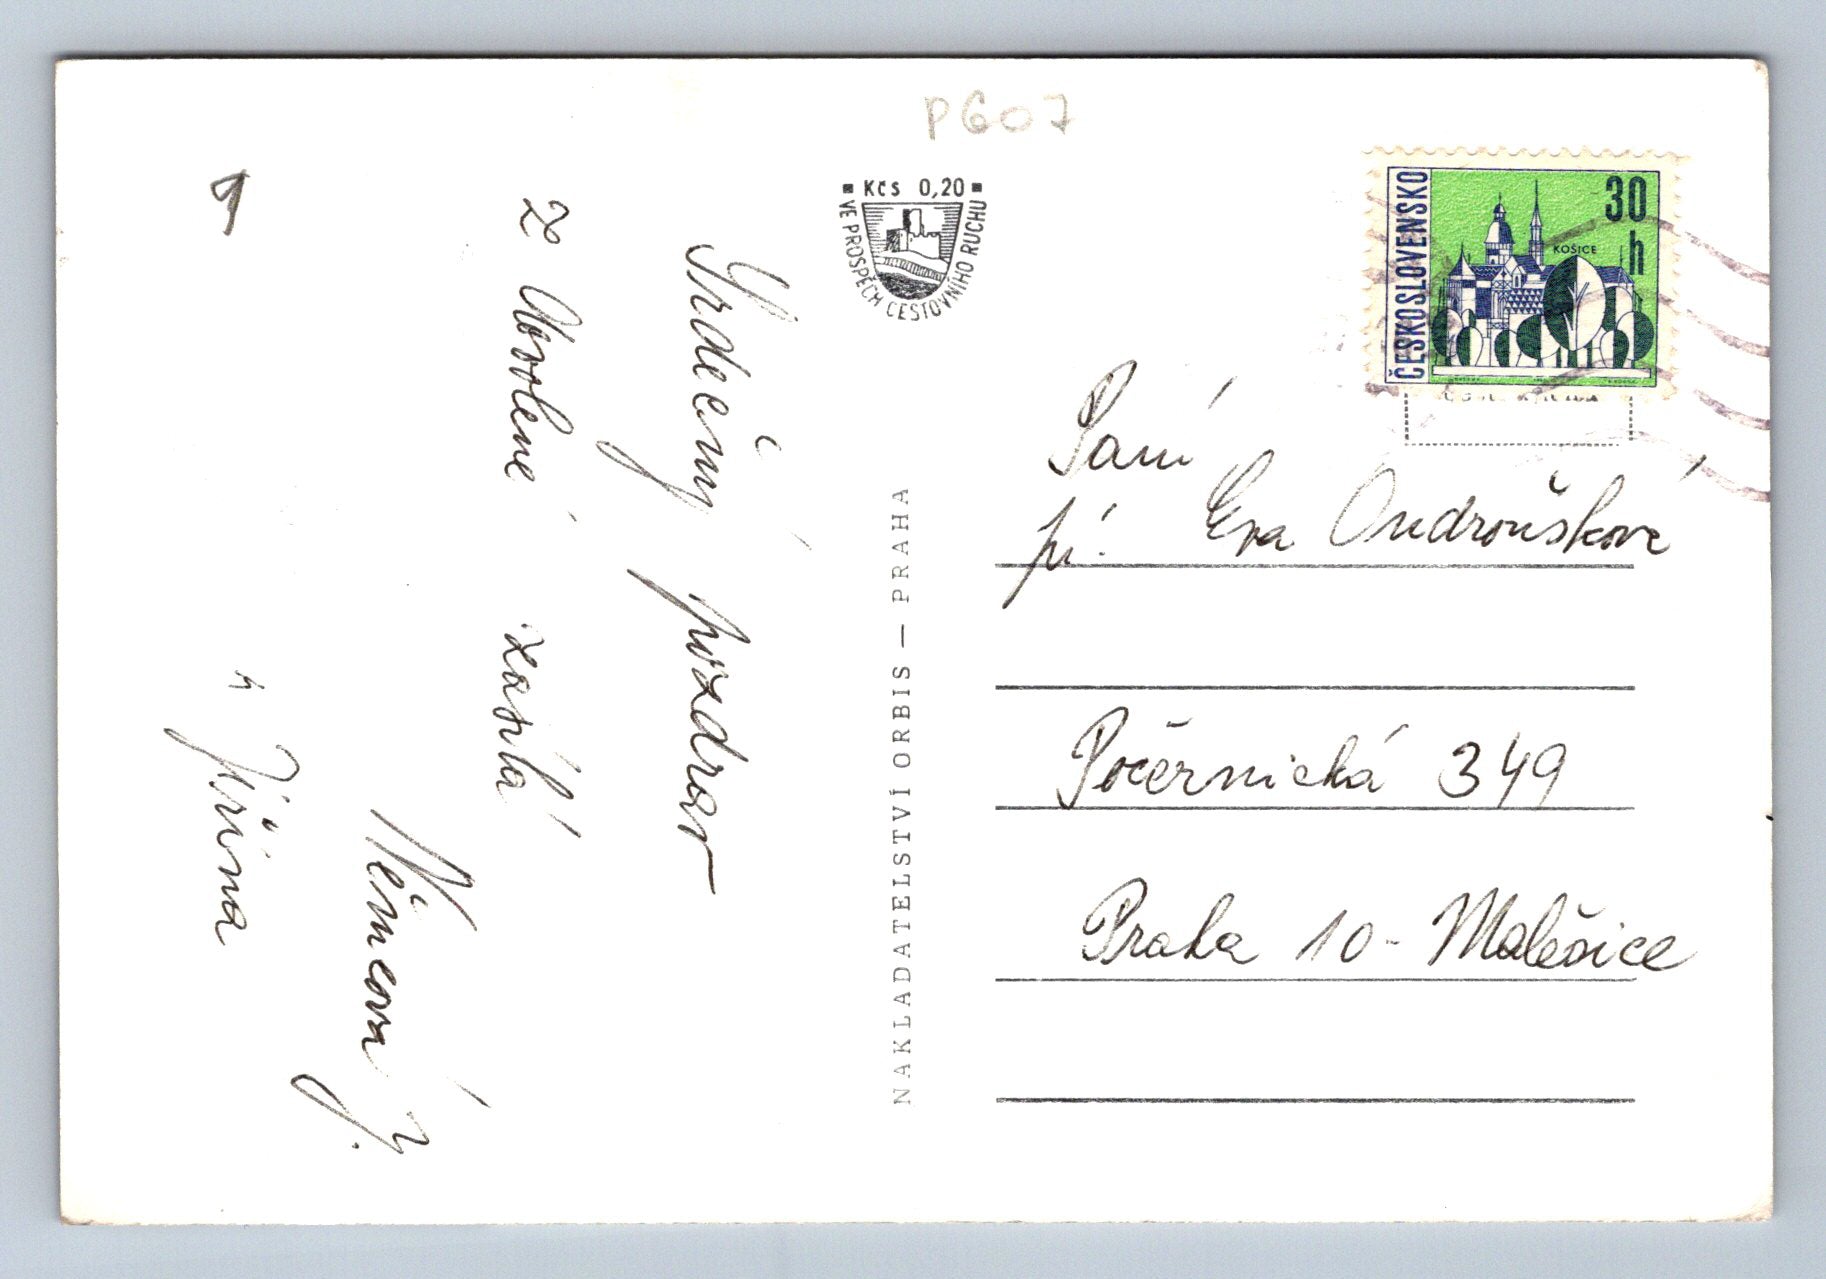 P607
Kčs 0,20
VE PROSPĚCH CESTOVNÍHO RUCHU
ČESKOSLOVENSKO
30
h
KOŠICE
Srdečný pozdrav
ze zasílá
Němcová J.
a Jiřina
NAKLADATELSTVÍ ORBIS — PRAHA
Paní
pí. Eva Ondroušková
Počernická 349
Praha 10 - Malešice